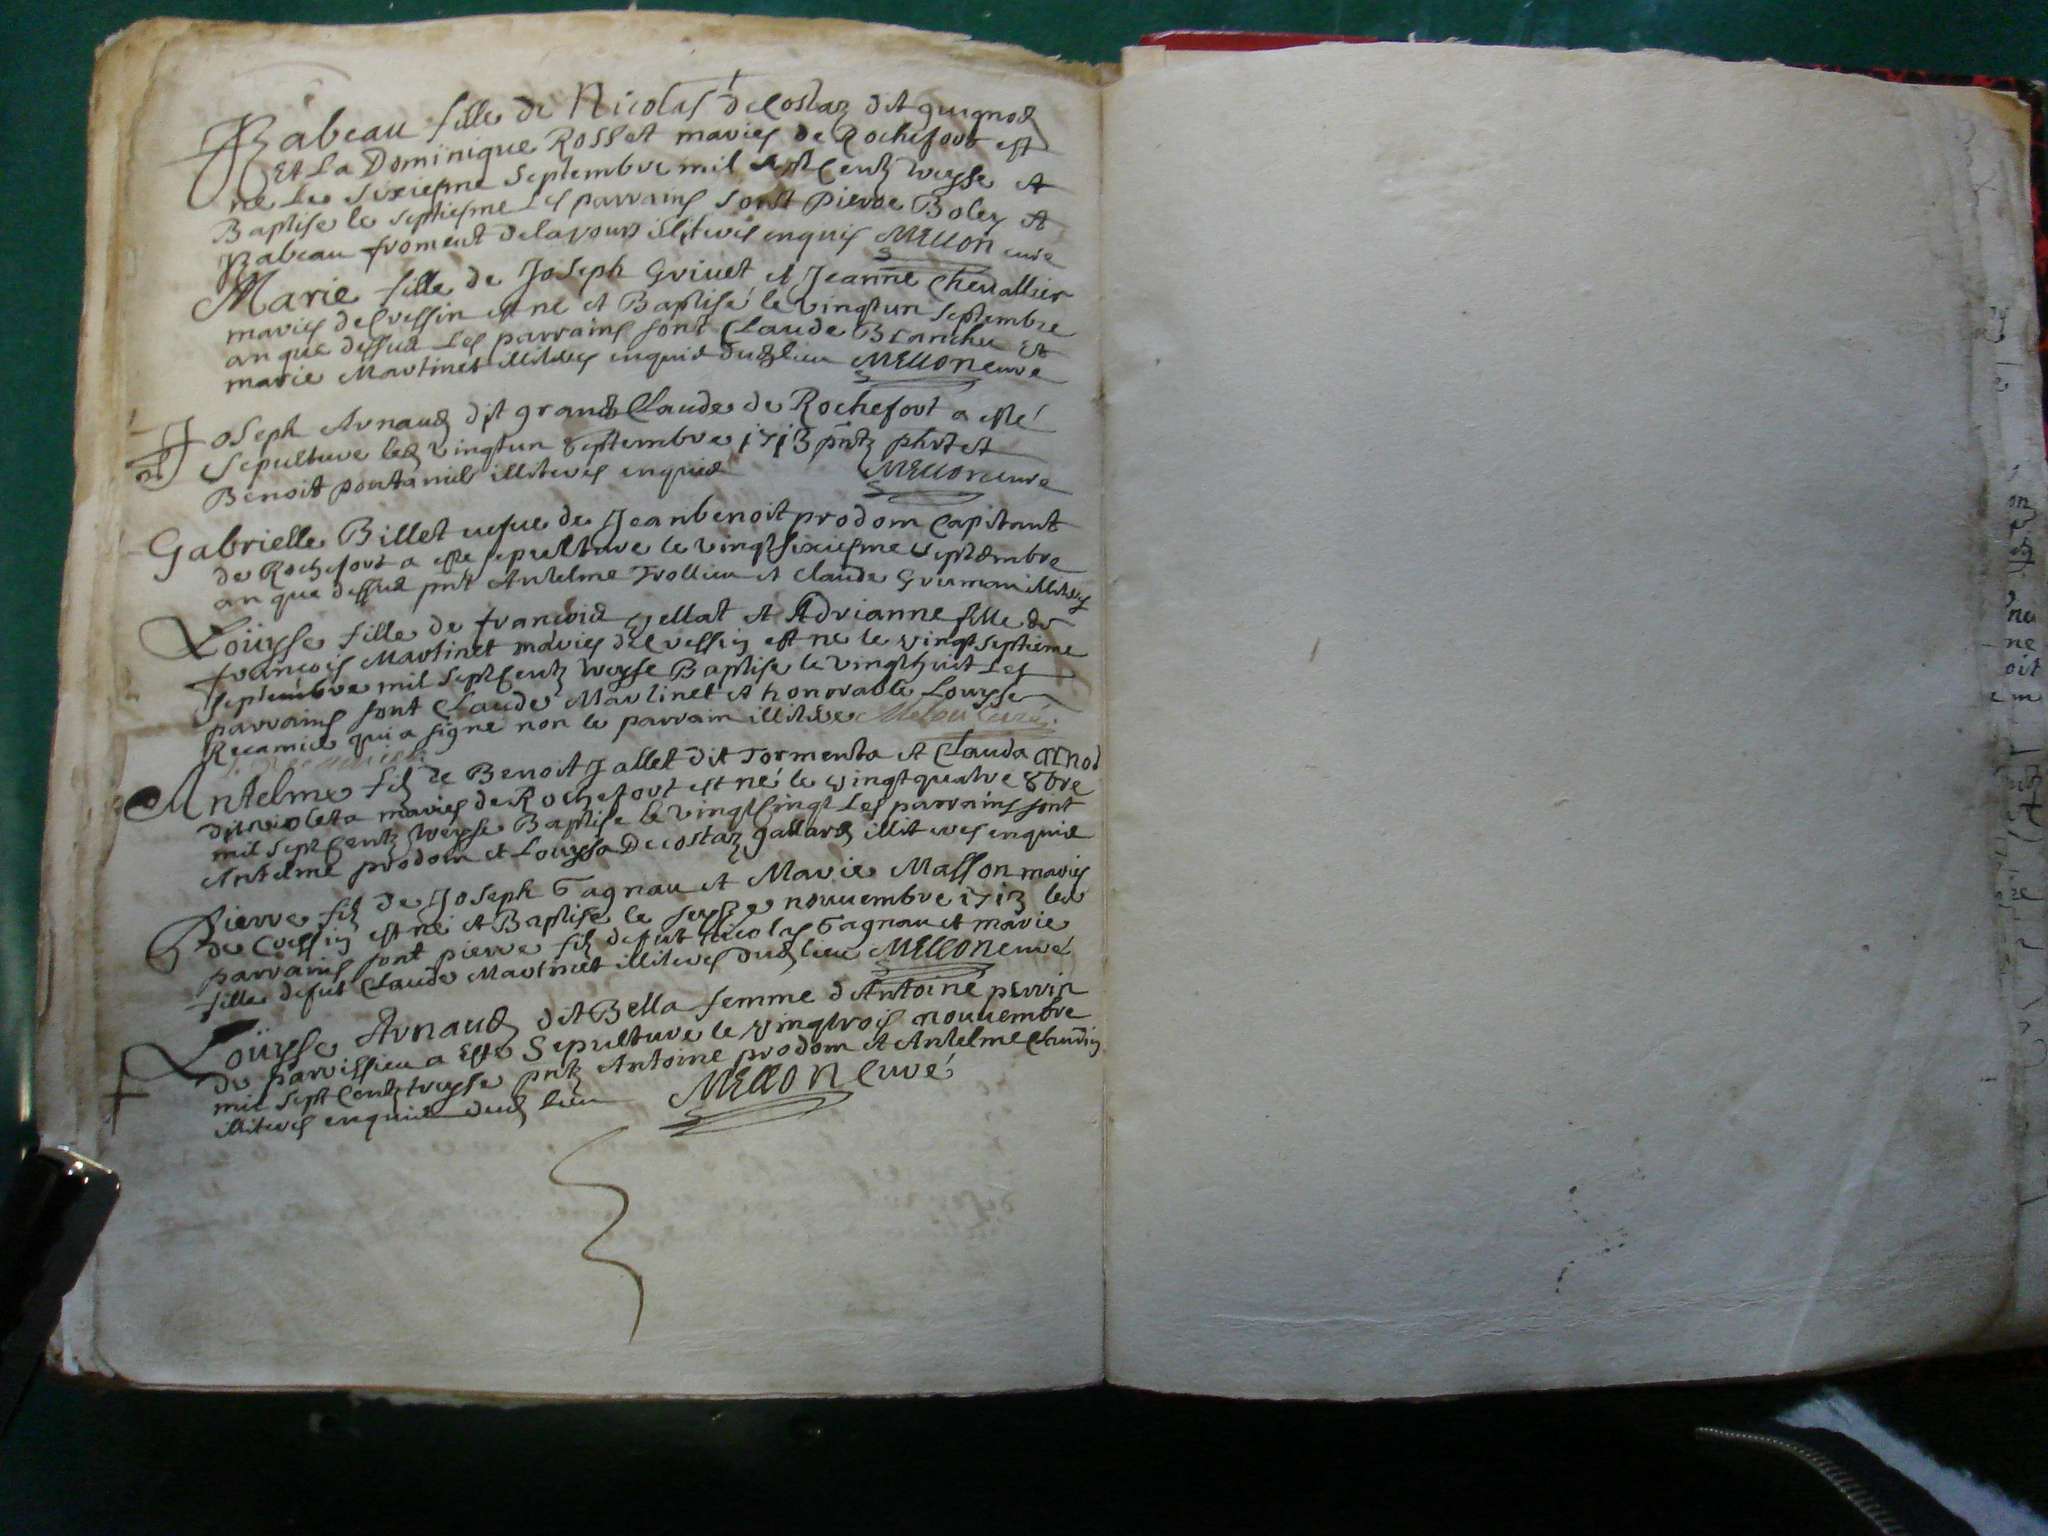 Izabeau fille de Nicolas decostaz dit guignod
Et La Dominique Rosset mariez de Rochefort est
né Le sixiesme septembre mil sept Centz treyse et
Baptise le septiesme Les parrains sont pierre Boley et
Izabeau froment delavours illiteres enquis MELLON curé
Marie fille de Joseph Grivet et Jeanne Chevallier
mariés de Cressin est né et Baptisé le vingtun septembre
an que dessus Les parrains sont Claude Blanchu et
marie Martinet illiteres enquis dudlieu MELLON curé
Joseph Arnaud dit grand Claude de Rochefort a esté
sepulturé led vingtun septembre 1713 pntz
Benoit pontanier illiteres enquis MELLON curé
Gabrielle Billet vefve de Jeanbenoit prodom Capitant
de Rochefort a esté sepulturé le vingtsixiesme septembre
an que dessus pnt Antelme Trollieu et Claude illiteres
Louyse fille de francois et Adrianne fille de
francois Martinet mariés de Cressin est né le vingtseptieme
septembre mil sept Centz treyse Baptisé le vingthuit Les
parrains sont Claude Martinet et honorable Louyse
Recamier qui a signé non le parrain illitere Melon Curé
Antelme filz de Benoit Jallet dit Tormenta et Clauda arnod
dit violeta mariés de Rochefort est né le vingtquatre 8bre
mil sept Centz treyse Baptise le vingtCinqt Les parrains sont
Antelme prodom et Louysa Decostaz gallard illiteres enquis
Pierre filz de Joseph Gagnau et Marie Masson mariés
de Cressin est né et Baptisé le seyze novembre 1713 les
parrains sont pierre filz defut Nicolas Gagnau et marie
fille defut Claude Martinet illiteres dudlieu MELLON curé
Louyse Arnaud dit Bella femme d'Antoine perrin
de parvissieu a Esté Sepulturé le vingtrois novembre
mil sept Centz treyse pntz Antoine prodom et Antelme
illiteres enquis dud lieu MELLON Curé